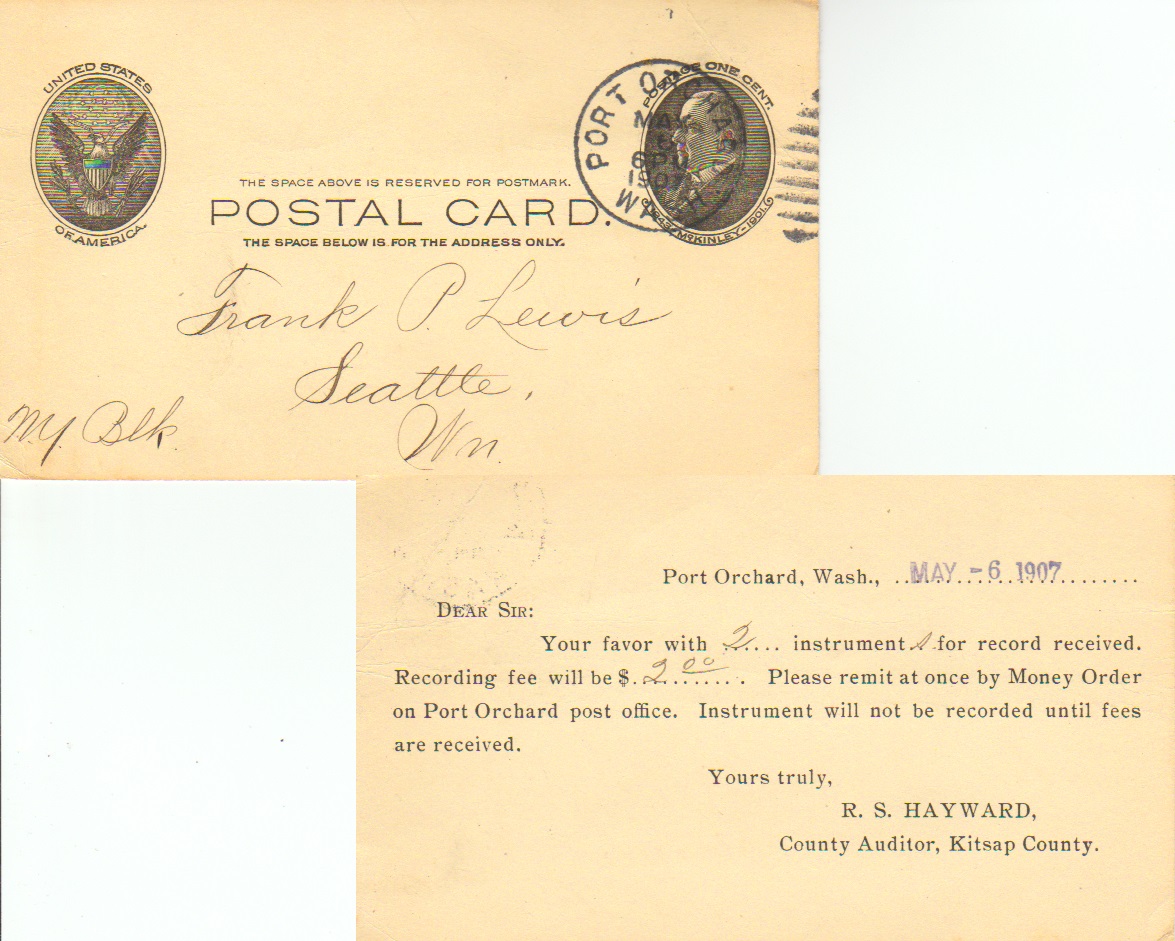 UNITED STATES
OF AMERICA.
POSTAGE ONE CENT.
1843 McKINLEY-1901.
PORT ORCHARD
MAY
6 PM
1907
WASH.
THE SPACE ABOVE IS RESERVED FOR POSTMARK.
POSTAL CARD.
THE SPACE BELOW IS FOR THE ADDRESS ONLY.
Frank P. Lewis
Seattle,
Wn.
My. Blk.
Port Orchard, Wash., MAY -6 1907
DEAR SIR:
Your favor with 2 .... instruments for record received.
Recording fee will be $. 2 00 . Please remit at once by Money Order
on Port Orchard post office. Instrument will not be recorded until fees
are received.
Yours truly,
R. S. HAYWARD,
County Auditor, Kitsap County.